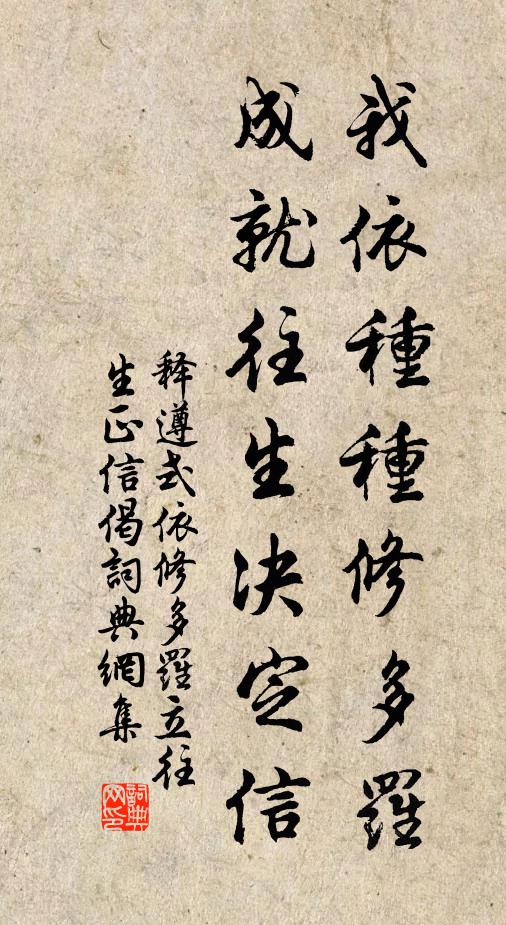 我依種種修多羅
成就往生决定信
释遵式依修多羅立往
生正信偈詞典網集
詞典
网印